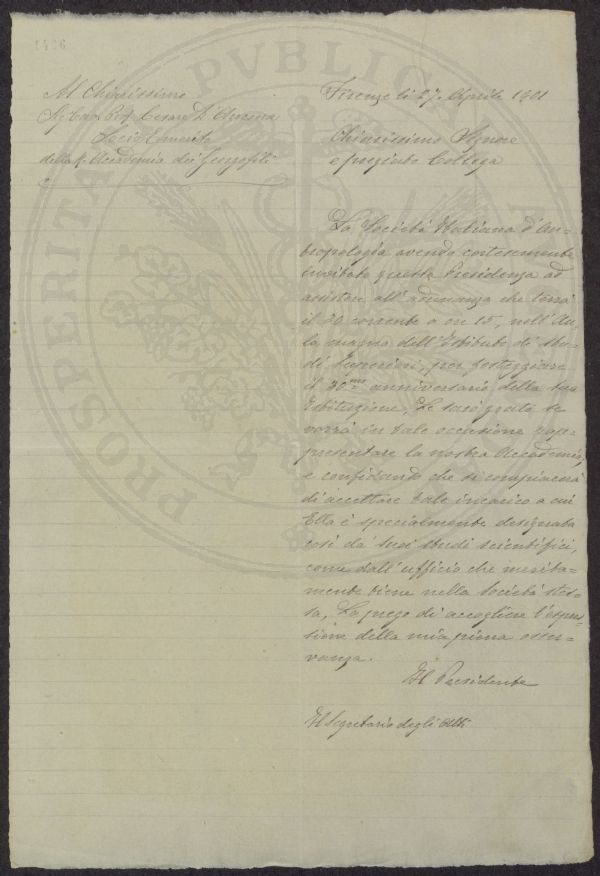 1426
Al Chiarissimo
Sig. Cav. Prof. Cesare D'Ancona
Socio Emerito
della R. Accademia dei Georgofili
Firenze li 27 Aprile 1901
Chiarissimo Signore
e pregiato Collega
La Società Italiana d'An-
tropologia avendo cortesemente
invitato questa Presidenza ad
assistere all'adunanza che terrà
il 30 corrente a ore 15, nell'Au-
la magna dell'Istituto di Stu-
di Superiori, per festeggiare
il 30mo anniversario della sua
Istituzione, Le sarò grato se
vorrà in tale occasione rap-
presentare la nostra Accademia,
e confidando che si compiacerà
di accettare tale incarico a cui
Ella è specialmente designata
così da' suoi studi scientifici,
come dall'ufficio che merita-
mente tiene nella Società stes-
sa, La prego di accogliere l'espres-
sione della mia piena osser-
vanza.
Il Presidente
Il Segretario degli Atti
PROSPERITA
PVBLICA